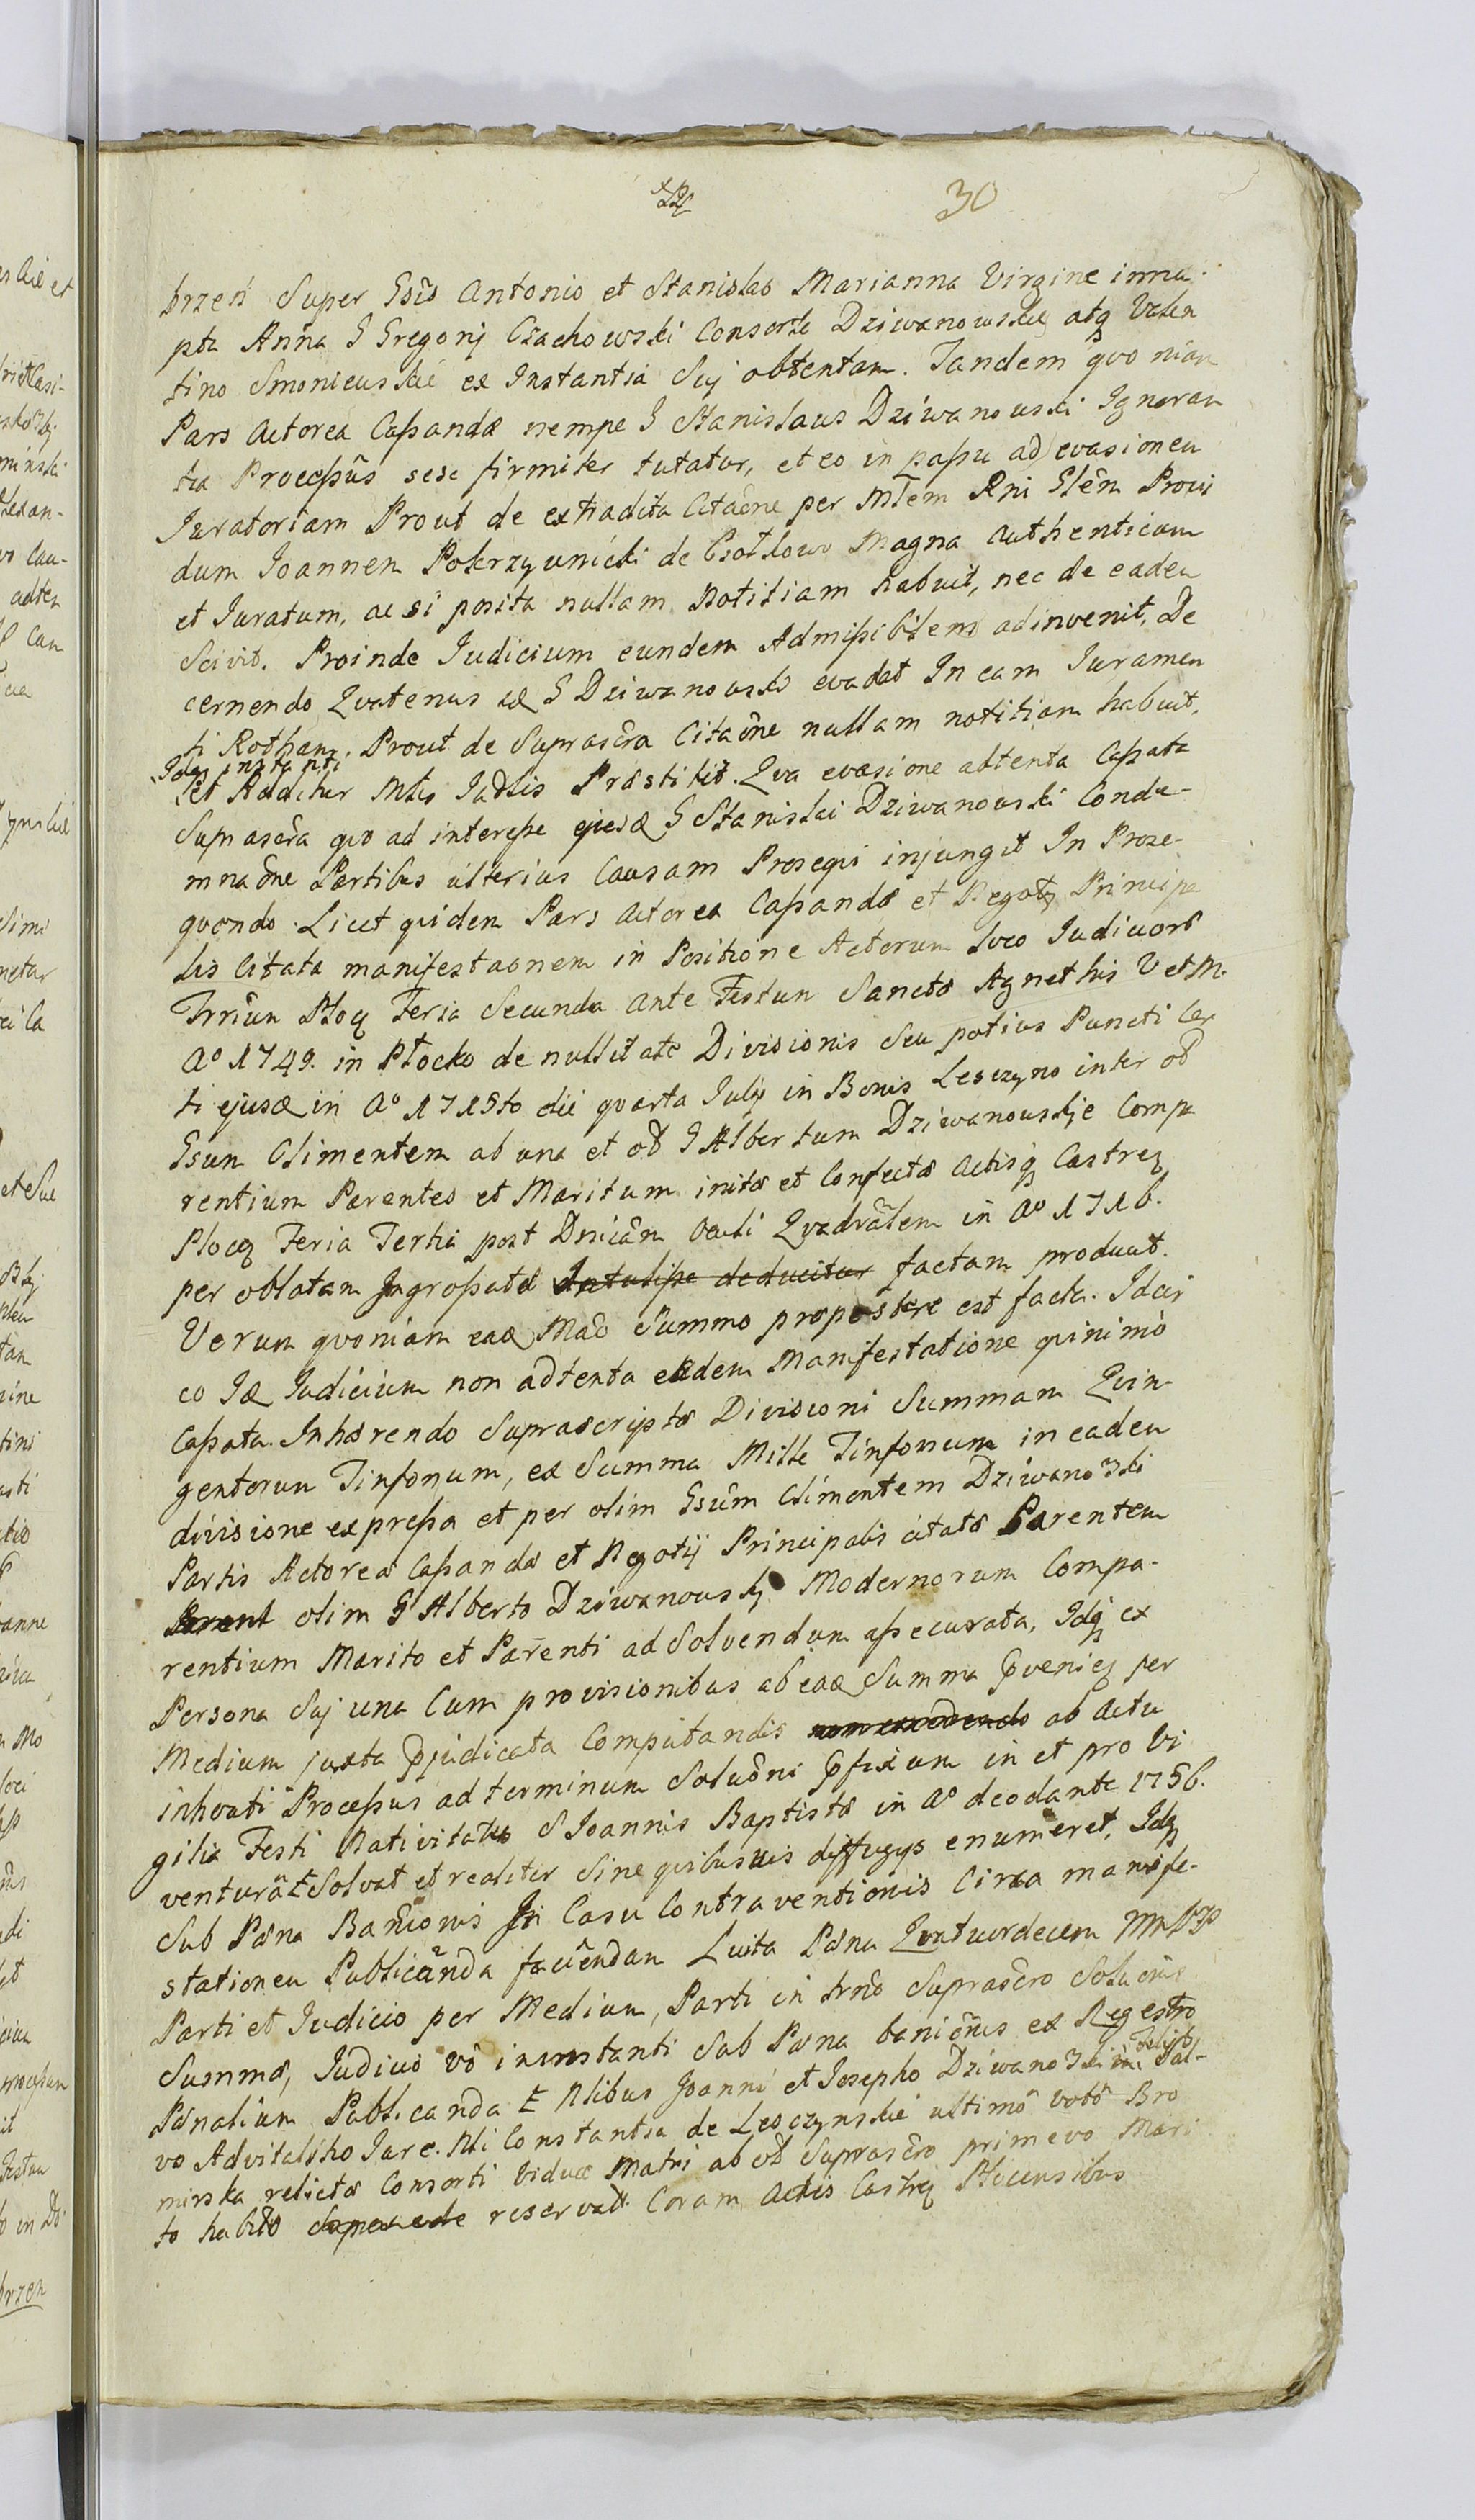 30
brzen Super Gsis Antonio et Stanislao Marianna Virgine innu
pta Anna G Gregorij Czachowski Consorte Dziwanowskie atq Valen
tino Smoniewskie ex Instantia Suj obtentam. Tandem quo niam
Pars Actorea Cassandæ nempe G Stanislaus Dziwanowski Ignoran
tia Processus sese firmiter tutatur, et eo in passu ad evasionem
Iuratoriam Prout de extradita Citaõne per Mlem Rni Glên Provi
dum Ioannem Pokrzywnicki de Magna authenticum
et Iuratum, ac si posita nullam Notitiam habuit, nec de eadem
Scivit. Proinde Iudicium eundem Admissibilem adinvenit, De
cernendo Quatenus G Dziwanowski evadat In eam Iuramen
ti Rotham. Prout de Suprascra Citaõne nullam notitiam habuit.
instanti
et Mlis Iudlis Præstitit. Qua evasione attenta Cassata
Suprascra quo ad interesse G Stanislai Dziwanowski Conde-
mnaõne Partibus ulterius Causam Prosequi injungit In Prose-
quendo. Licet quidem Pars Actorea Cassandæ et Negotij Principa
lis Citata manifestaonem in Positione Actorum loco Iudicior
Trium Ploc Feria Secunda ante Festum Sanctæ Agnethis V et M.
A° 1749. in Płocko de nullitate Divisionis Seu potius Puncti Cer
ti in A° 1715to die quarta Julij in Bonis Lesczyno inter oð
Gsum Climentem ab una et oð G Albertum Dziwanowskie Compa
rentium Parentes et Maritum initæ et Confectæ Actisq Castren
Ploc Feria Tertia post Dnicâm Oculi Quadrâlem in A° 1716.
per oblatam Ingrossatæ Intulisse deducitur factam producat.
Verum quoniam Summo propostere est facta. Idcir
co Iudicium non adtenta eadem Manifestatione quinimò
Cassata. Inhærendo Suprascriptæ Divisioni Summam Quin-
gentorum Tinfonum, ex Summa Mille Tinfonum in eadem
divisione expressa et per olim Gsum Climentem Dziwano3ki
Partis Actoreæ Cassandæ et Negotij Principalis citatæ Parentem
olim G Alberto Dziwanowskj Modernorum Compa-
rentium Marito et Parenti ad Solvendum assecurata, Idq ex
Persona Suj una Cum provisionibus ab Summa per
Medium juxta Computandis ab Actu
inhoati Processus ad terminum Soluõni in et pro Vi
gilia Festi Nativitatis S Ioannis Baptistæ in A° deodante 1756.
Solvat et realiter Sine quibusvis diffugijs enumeret, Idq
Sub Pæna Baniõnis In Casu Contraventionis Circa manife-
stationem Publicanda Luita Pæna Quatuordecem
Parti et Iudicio per Medium, Parti in trno Suprascro
Summæ, Iudicio vô in instanti Sub Pæna baniõnis ex Regestro
Pænalium Publicanda Nlibus Joanni et Josepho Dziwano3ki Sal-
vo Advitalitio Jure. Nli Constantia de Lesczynskie ultimô votô Bro
mirska relictæ Consorti Viduæ Matri ab oð Suprascro primevo Mari
to habito reservat. Coram Actis Castren Plocensibus